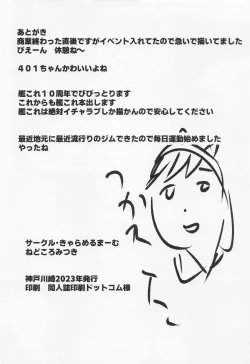 あとがき
商業終わった直後ですがイベント入れてたので急いで描いてました
ぴえーん 休憩ね〜
401ちゃんかわいいよね
艦これ10周年でびびっとります
これからも艦これ本出します
艦これは絶対イチャラブしか描かんので安心してください
最近地元に最近流行りのジムできたので毎日運動始めました
やったね
サークル・きゃらめるまーむ
ねどころみつき
神戸川崎2023年発行
印刷 同人誌印刷ドットコム様